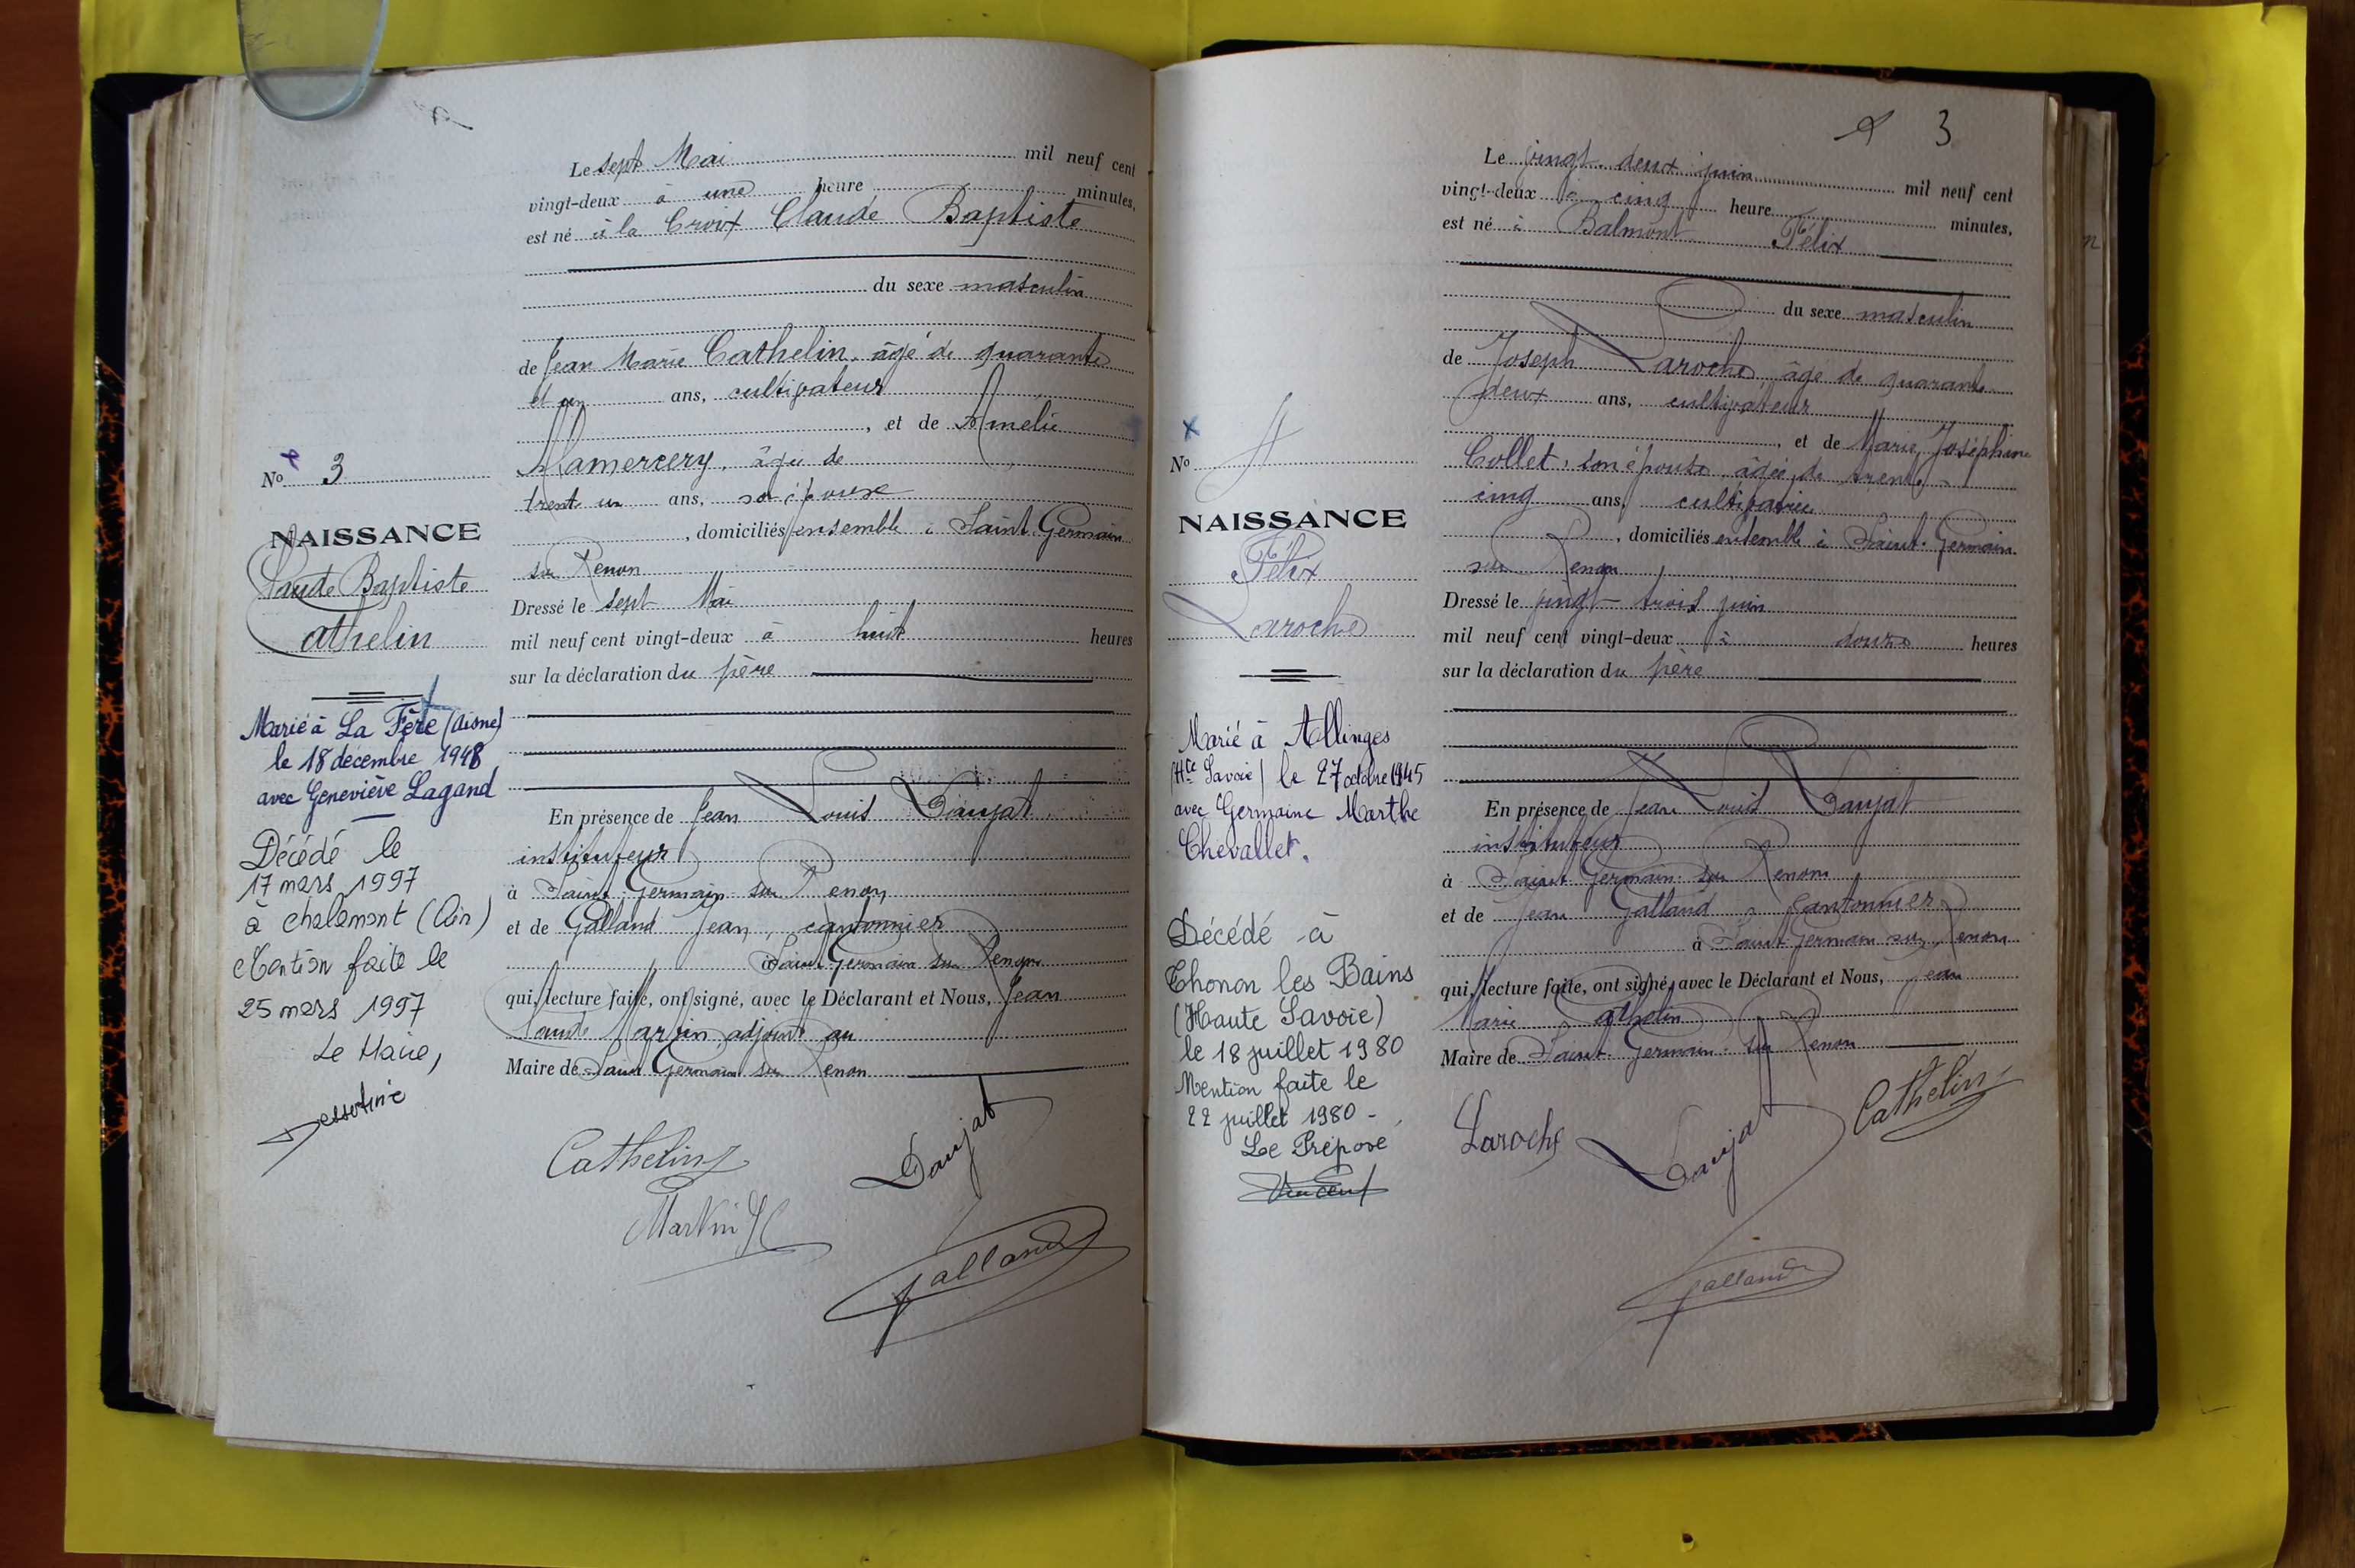 Le sept Mai mil neuf cent
vingt-deux à une heure minutes,
est né à la Croix Claude Baptiste
du sexe masculin
de Jean Marie Cathelin, âgé de quarante
et un ans, cultivateur
, et de Amélie
Mamercery, âgée de
trent un ans, son épouse
, domiciliés ensemble à Saint Germain
sur Renon
Dressé le sept Mai
mil neuf cent vingt-deux à huit heures
sur la déclaration du père
En présence de Jean Louis Daujat
instituteur
à Saint Germain sur Renon
et de Galland Jean, cantonnier
à Saint Germain sur Renon
qui, lecture faite, ont signé, avec le Déclarant et Nous, Jean
Claude Martin, adjoint au
Maire de Saint Germain sur Renon
Cathelin
Daujat
Martin JC
Galland
No 3
NAISSANCE
Claude Baptiste
Cathelin
Marié à La Fère (Aisne)
le 18 décembre 1948
avec Geneviève Lagand
Décédé le
17 mars 1997
à Chalamont (Ain)
Mention faite le
25 mars 1997
Le Maire,
3
Le vingt-deux juin mil neuf cent
vingt-deux à cinq heure minutes,
est né à Balmont Félix
du sexe masculin
de Joseph Laroche, âgé de quarante
deux ans, cultivateur
, et de Marie Joséphine
Collet, son épouse, âgée de trente
cinq ans, cultivatrice
, domiciliés ensemble à Saint-Germain
sur Renon
Dressé le vingt-trois juin
mil neuf cent vingt-deux à douze heures
sur la déclaration du père
En présence de Jean Louis Daujat
instituteur
à Saint Germain sur Renon
et de Jean Galland, cantonnier
à Saint Germain sur Renon
qui, lecture faite, ont signé, avec le Déclarant et Nous, Jean
Marie Cathelin
Maire de Saint-Germain-sur Renon
Laroche
Daujat
Cathelin
Galland
No 4
NAISSANCE
Félix
Laroche
Marié à Allinges
(Hte Savoie) le 27 octobre 1945
avec Germaine Marthe
Chevallet.
Décédé à
Thonon les Bains
(Haute Savoie)
le 18 juillet 1980
Mention faite le
22 juillet 1980 -
Le Préposé
Vincent